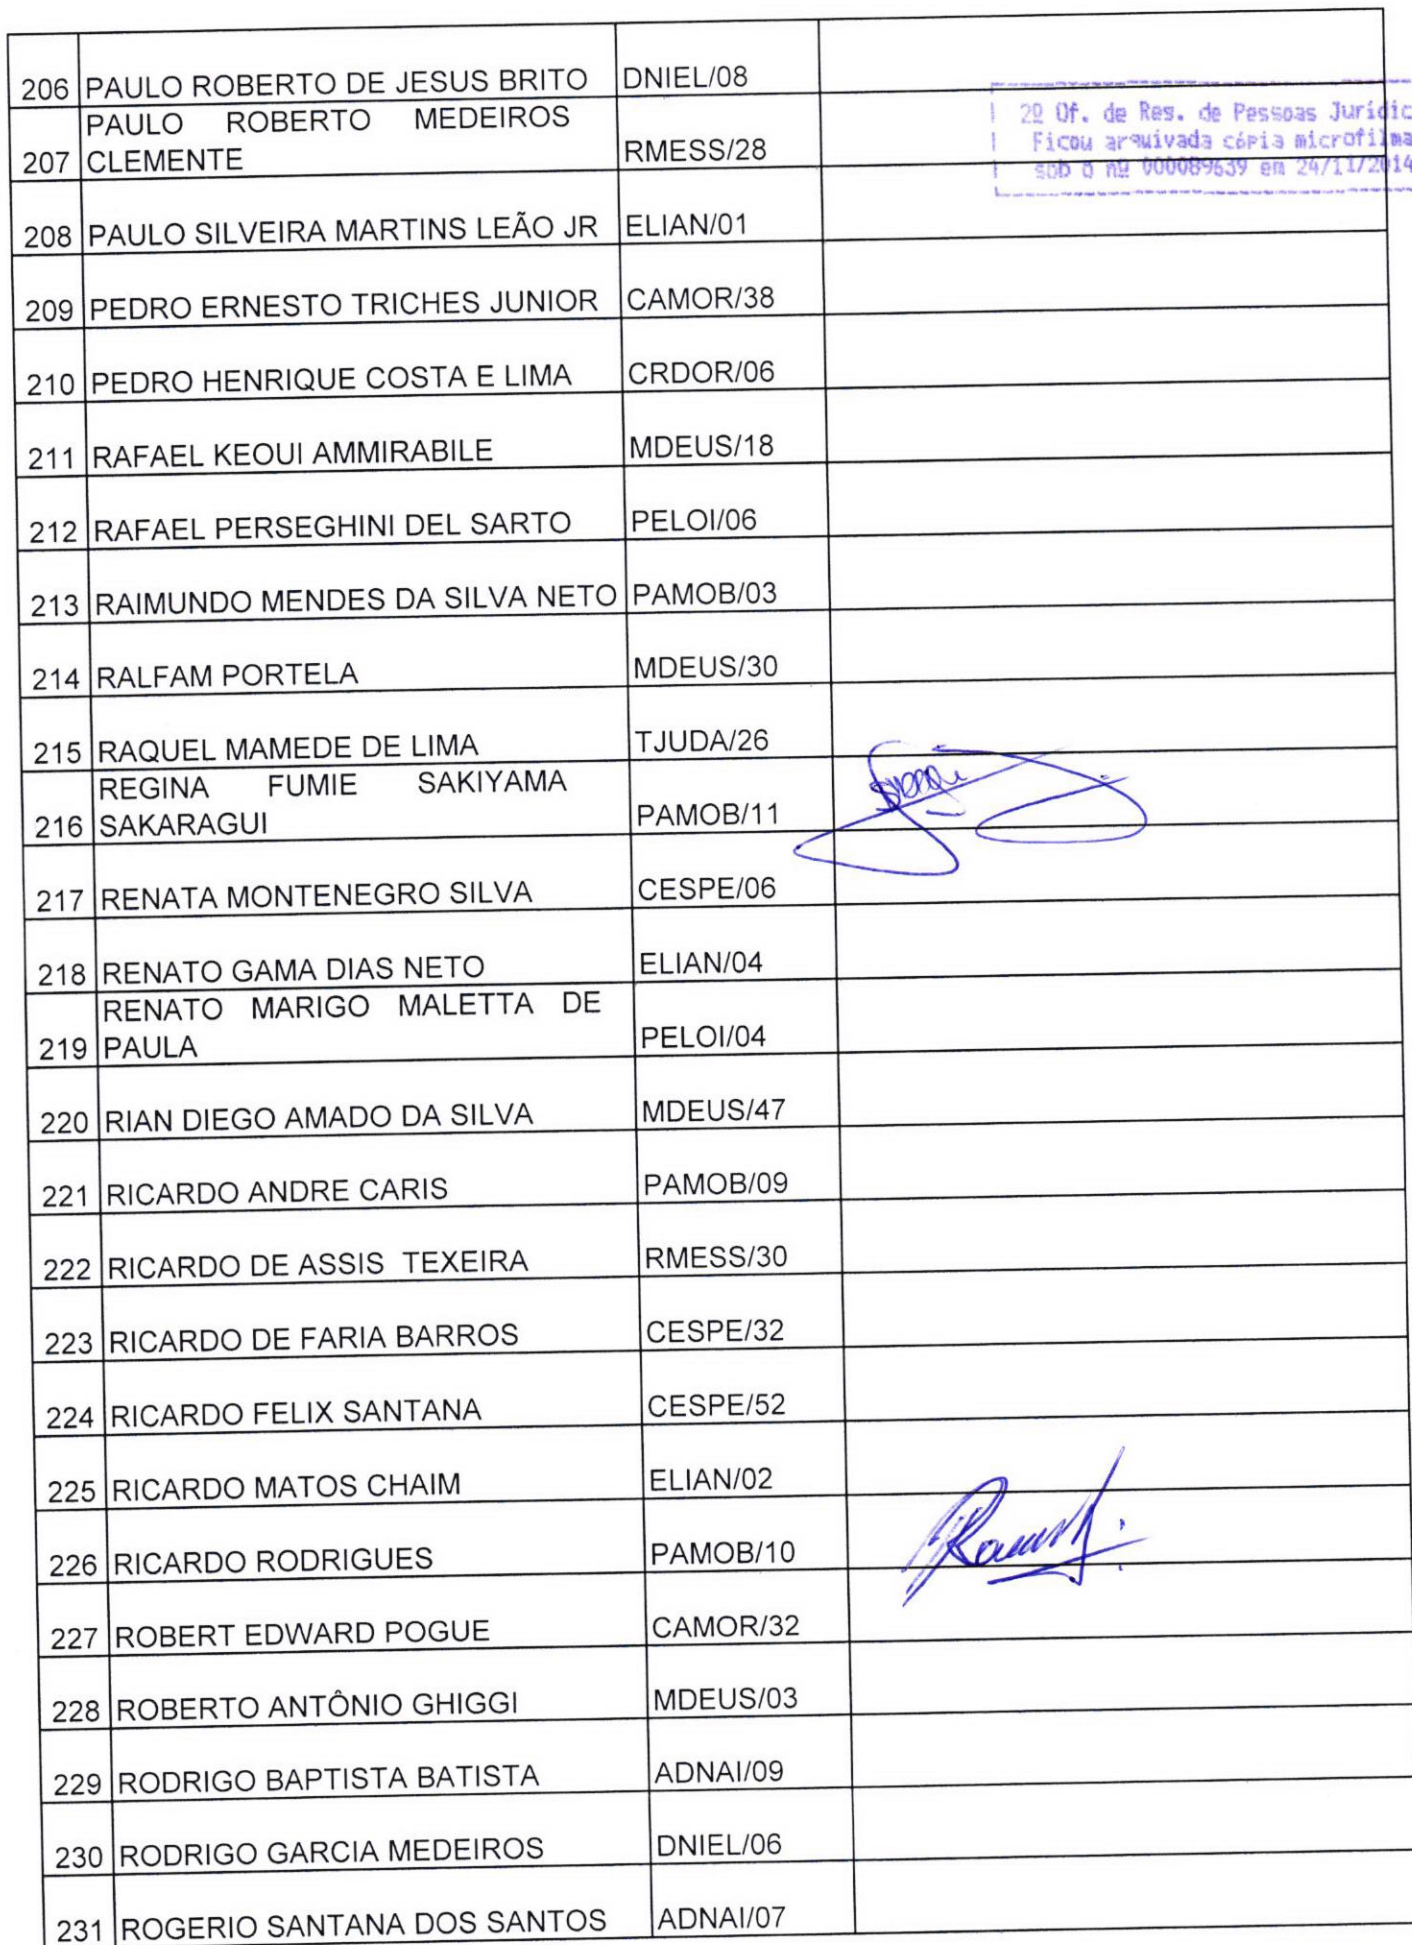 206 PAULO ROBERTO DE JESUS BRITO DNIEL/08
2º Of. de Res. de Pessoas Jurídic
Ficou arquivada cópia microfilma
sob o nº 000089639 em 24/11/2014
PAULO ROBERTO MEDEIROS
207 CLEMENTE RMESS/28
208 PAULO SILVEIRA MARTINS LEÃO JR ELIAN/01
209 PEDRO ERNESTO TRICHES JUNIOR CAMOR/38
210 PEDRO HENRIQUE COSTA E LIMA CRDOR/06
211 RAFAEL KEOUI AMMIRABILE MDEUS/18
212 RAFAEL PERSEGHINI DEL SARTO PELOI/06
213 RAIMUNDO MENDES DA SILVA NETO PAMOB/03
214 RALFAM PORTELA MDEUS/30
215 RAQUEL MAMEDE DE LIMA TJUDA/26
REGINA FUMIE SAKIYAMA
216 SAKARAGUI PAMOB/11
217 RENATA MONTENEGRO SILVA CESPE/06
218 RENATO GAMA DIAS NETO ELIAN/04
RENATO MARIGO MALETTA DE
219 PAULA PELOI/04
220 RIAN DIEGO AMADO DA SILVA MDEUS/47
221 RICARDO ANDRE CARIS PAMOB/09
222 RICARDO DE ASSIS TEXEIRA RMESS/30
223 RICARDO DE FARIA BARROS CESPE/32
224 RICARDO FELIX SANTANA CESPE/52
225 RICARDO MATOS CHAIM ELIAN/02
226 RICARDO RODRIGUES PAMOB/10
227 ROBERT EDWARD POGUE CAMOR/32
228 ROBERTO ANTÔNIO GHIGGI MDEUS/03
229 RODRIGO BAPTISTA BATISTA ADNAI/09
230 RODRIGO GARCIA MEDEIROS DNIEL/06
231 ROGERIO SANTANA DOS SANTOS ADNAI/07